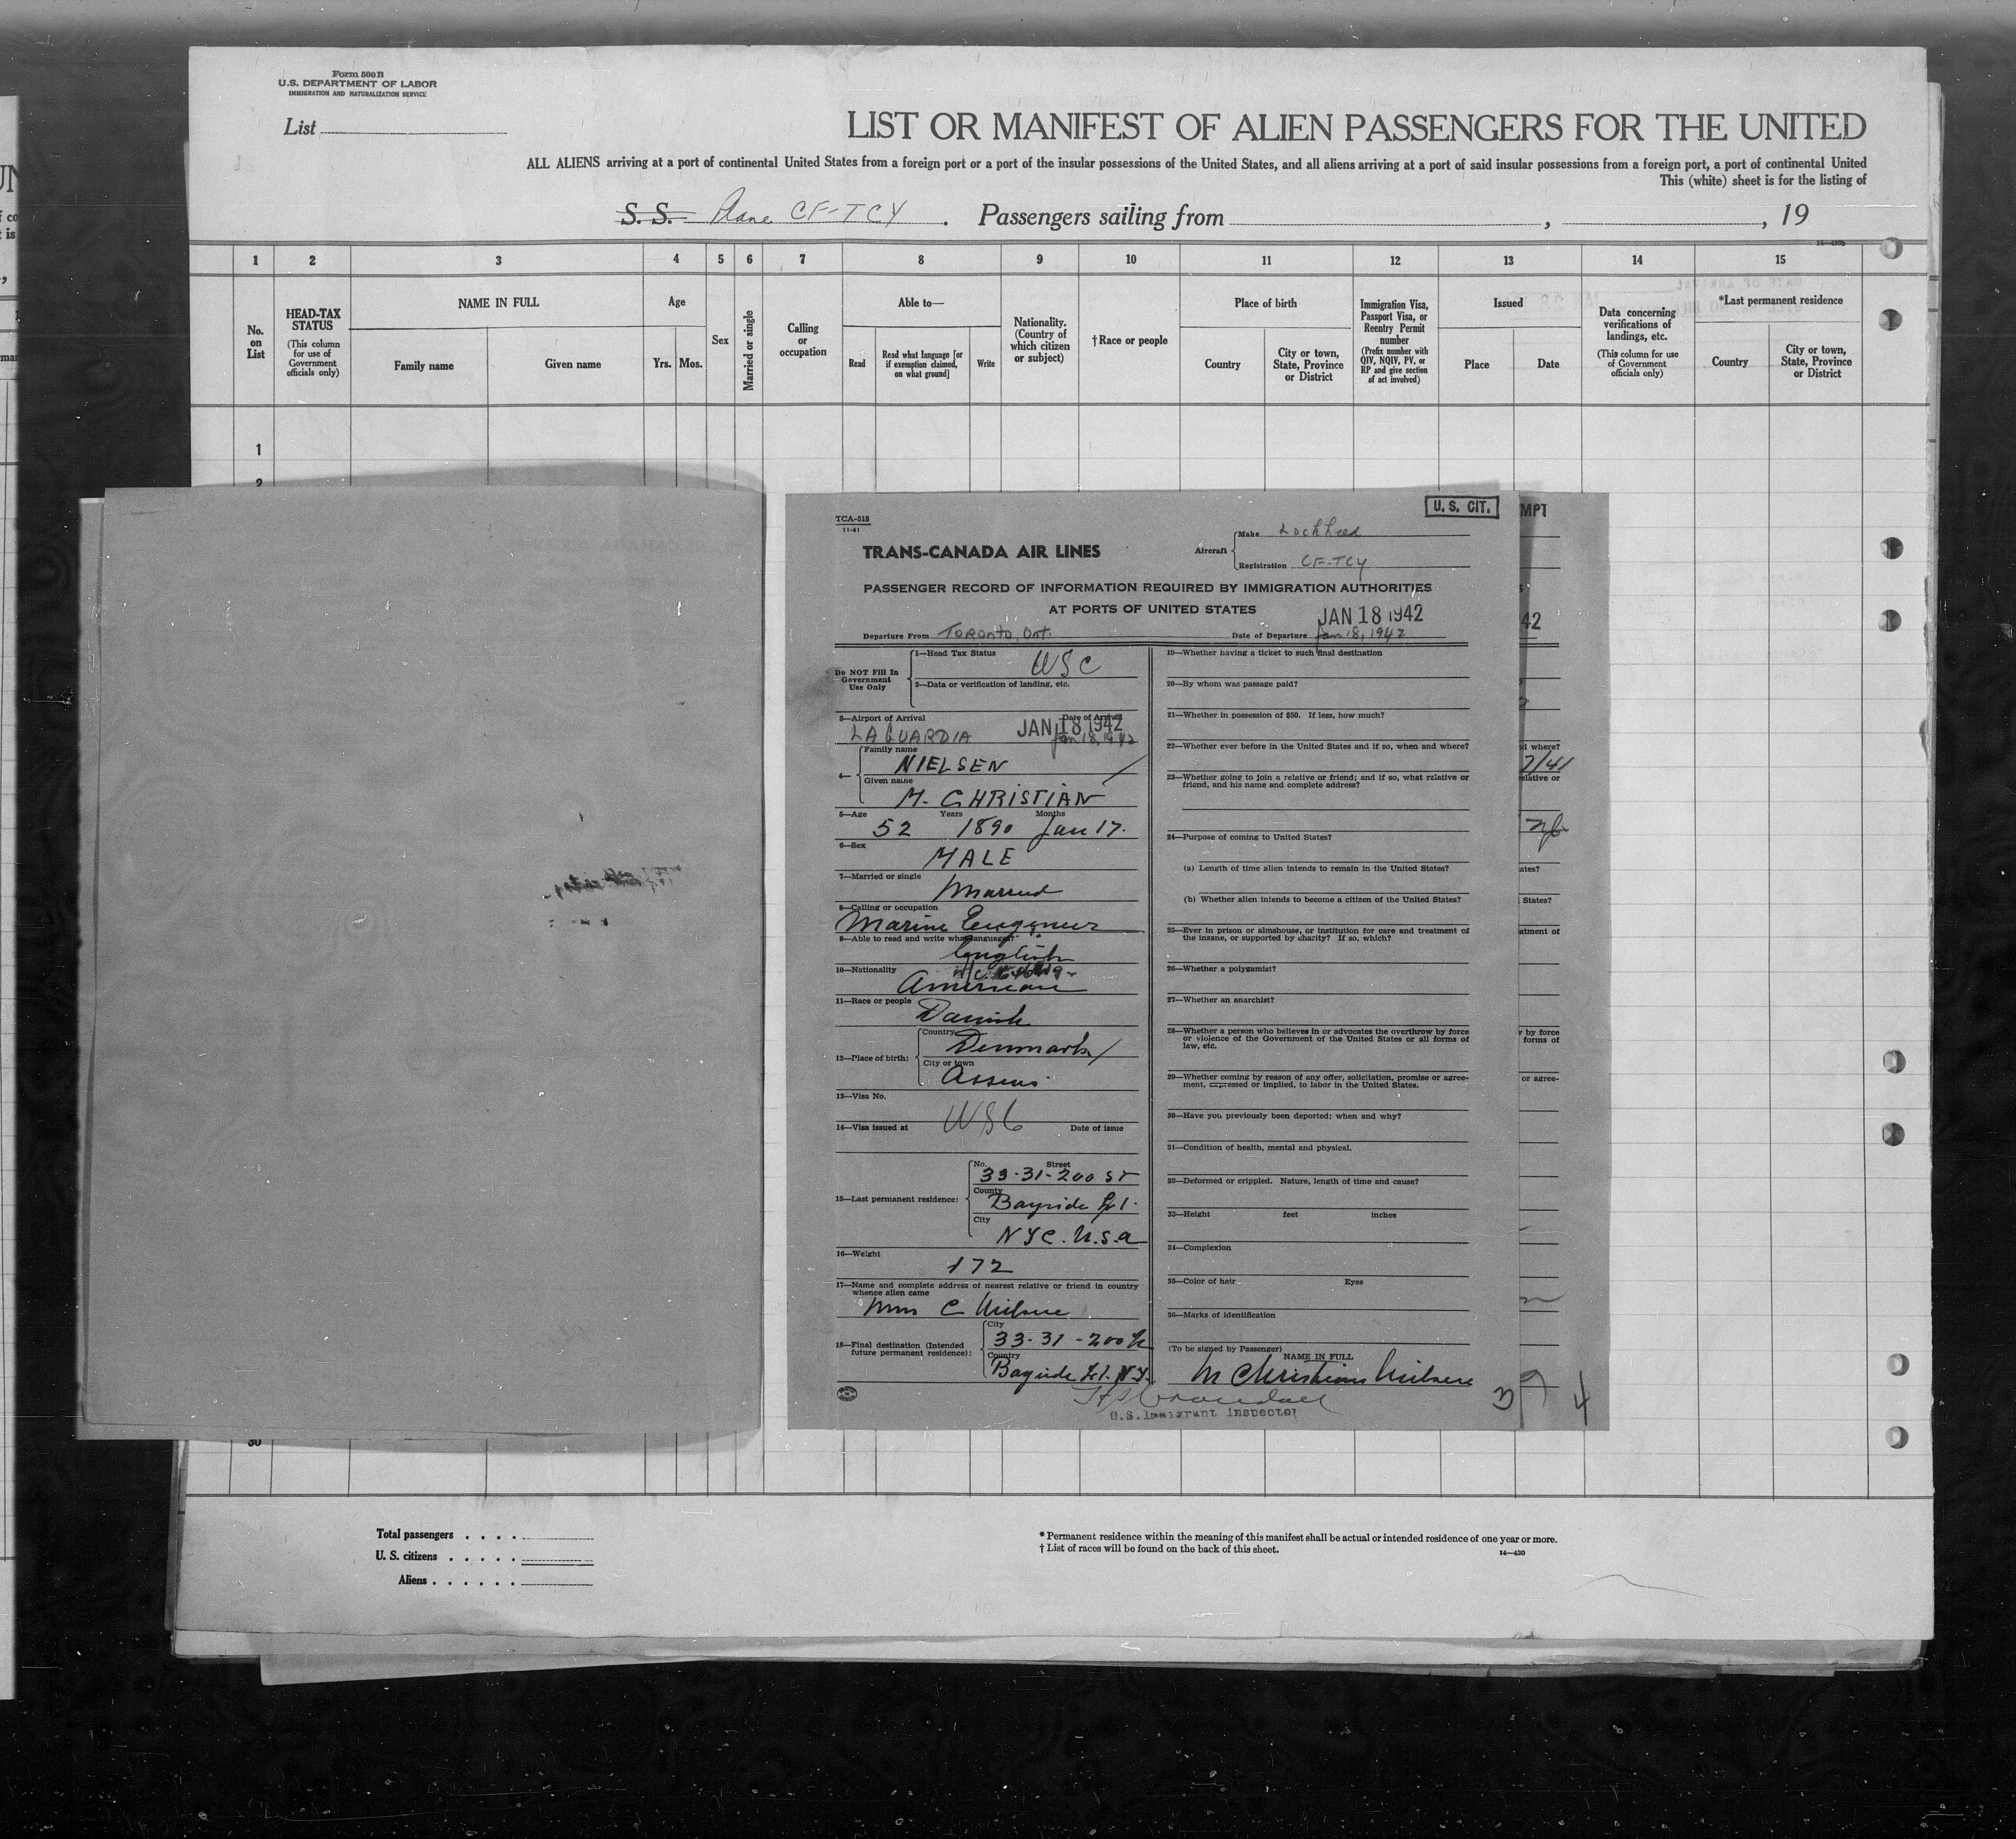 Form 500 B
U.S. DEPARTMENT OF LABOR
IMMIGRATION AND NATURALIZATION SERVICE
List
LIST OR MANIFEST OF ALIEN PASSENGERS FOR THE UNITED
ALL ALIENS arriving at a port of continental United States from a foreign port or a port of the insular possessions of the United States, and all aliens arriving at a port of said insular possessions from a foreign port, a port of continental United
This (white) sheet is for the listing of
S. S. Plane CF-TCY. Passengers sailing from , , 19
14—430b
1 2 3 4 5 6 7 8 9 10 11 12 13 14 15
No. on List
HEAD-TAX STATUS
(This column for use of Government officials only)
NAME IN FULL
Family name
Given name
Age
Yrs. Mos.
Sex
Married or single
Calling or occupation
Able to—
Read
Read what language [or if exemption claimed, on what ground]
Write
Nationality. (Country of which citizen or subject)
†Race or people
Place of birth
Country
City or town, State, Province or District
Immigration Visa, Passport Visa, or Reentry Permit number
(Prefix number with QIV, NQIV, PV, or RP and give section of act involved)
Issued
Place
Date
Data concerning verifications of landings, etc.
(This column for use of Government officials only)
*Last permanent residence
Country
City or town, State, Province or District
1
2
TCA-518
11-41
U. S. CIT.
TRANS-CANADA AIR LINES
Aircraft
Make Lockheed
Registration CF-TCY
PASSENGER RECORD OF INFORMATION REQUIRED BY IMMIGRATION AUTHORITIES
AT PORTS OF UNITED STATES
JAN 18 1942
Departure From Toronto, Ont.
Date of Departure Jan 18, 1942
Do NOT Fill In Government Use Only
1—Head Tax Status WSC
2—Data or verification of landing, etc.
3—Airport of Arrival LAGUARDIA
Date of Arrival JAN 18 1942
Jan 18, 1942
4—
Family name NIELSEN
Given name M. CHRISTIAN
5—Age 52 Years 1890 Months Jan 17.
6—Sex MALE
7—Married or single Married
8—Calling or occupation
Marine Engineer
9—Able to read and write what language?
English
10—Nationality American
11—Race or people Danish
12—Place of birth:
Country Denmark
City or town Assens
13—Visa No.
WSC
14—Visa issued at
Date of issue
15—Last permanent residence:
No. Street
33-31-200 ST
County Bayside L.I.
City NYC. U.S.A
16—Weight 172
17—Name and complete address of nearest relative or friend in country whence alien came
Mrs C Nielsen
18—Final destination (Intended future permanent residence):
City 33-31-200 St
Country Bayside L.I. N.Y.
19—Whether having a ticket to such final destination
20—By whom was passage paid?
21—Whether in possession of $50. If less, how much?
22—Whether ever before in the United States and if so, when and where?
23—Whether going to join a relative or friend; and if so, what relative or friend, and his name and complete address?
24—Purpose of coming to United States?
(a) Length of time alien intends to remain in the United States?
(b) Whether alien intends to become a citizen of the United States?
25—Ever in prison or almshouse, or institution for care and treatment of the insane, or supported by charity? If so, which?
26—Whether a polygamist?
27—Whether an anarchist?
28—Whether a person who believes in or advocates the overthrow by force or violence of the Government of the United States or all forms of law, etc.
29—Whether coming by reason of any offer, solicitation, promise or agreement, expressed or implied, to labor in the United States.
30—Have you previously been deported; when and why?
31—Condition of health, mental and physical.
32—Deformed or crippled. Nature, length of time and cause?
33—Height feet inches
34—Complexion
35—Color of hair Eyes
36—Marks of identification
(To be signed by Passenger)
NAME IN FULL
M Christian Nielsen
U.S. Immigrant Inspector
MPT
42
d where?
7/41
elative or
ates?
States?
atment of
by force
forms of
or agree-
30
Total passengers
U. S. citizens
Aliens
* Permanent residence within the meaning of this manifest shall be actual or intended residence of one year or more.
† List of races will be found on the back of this sheet.
14—430